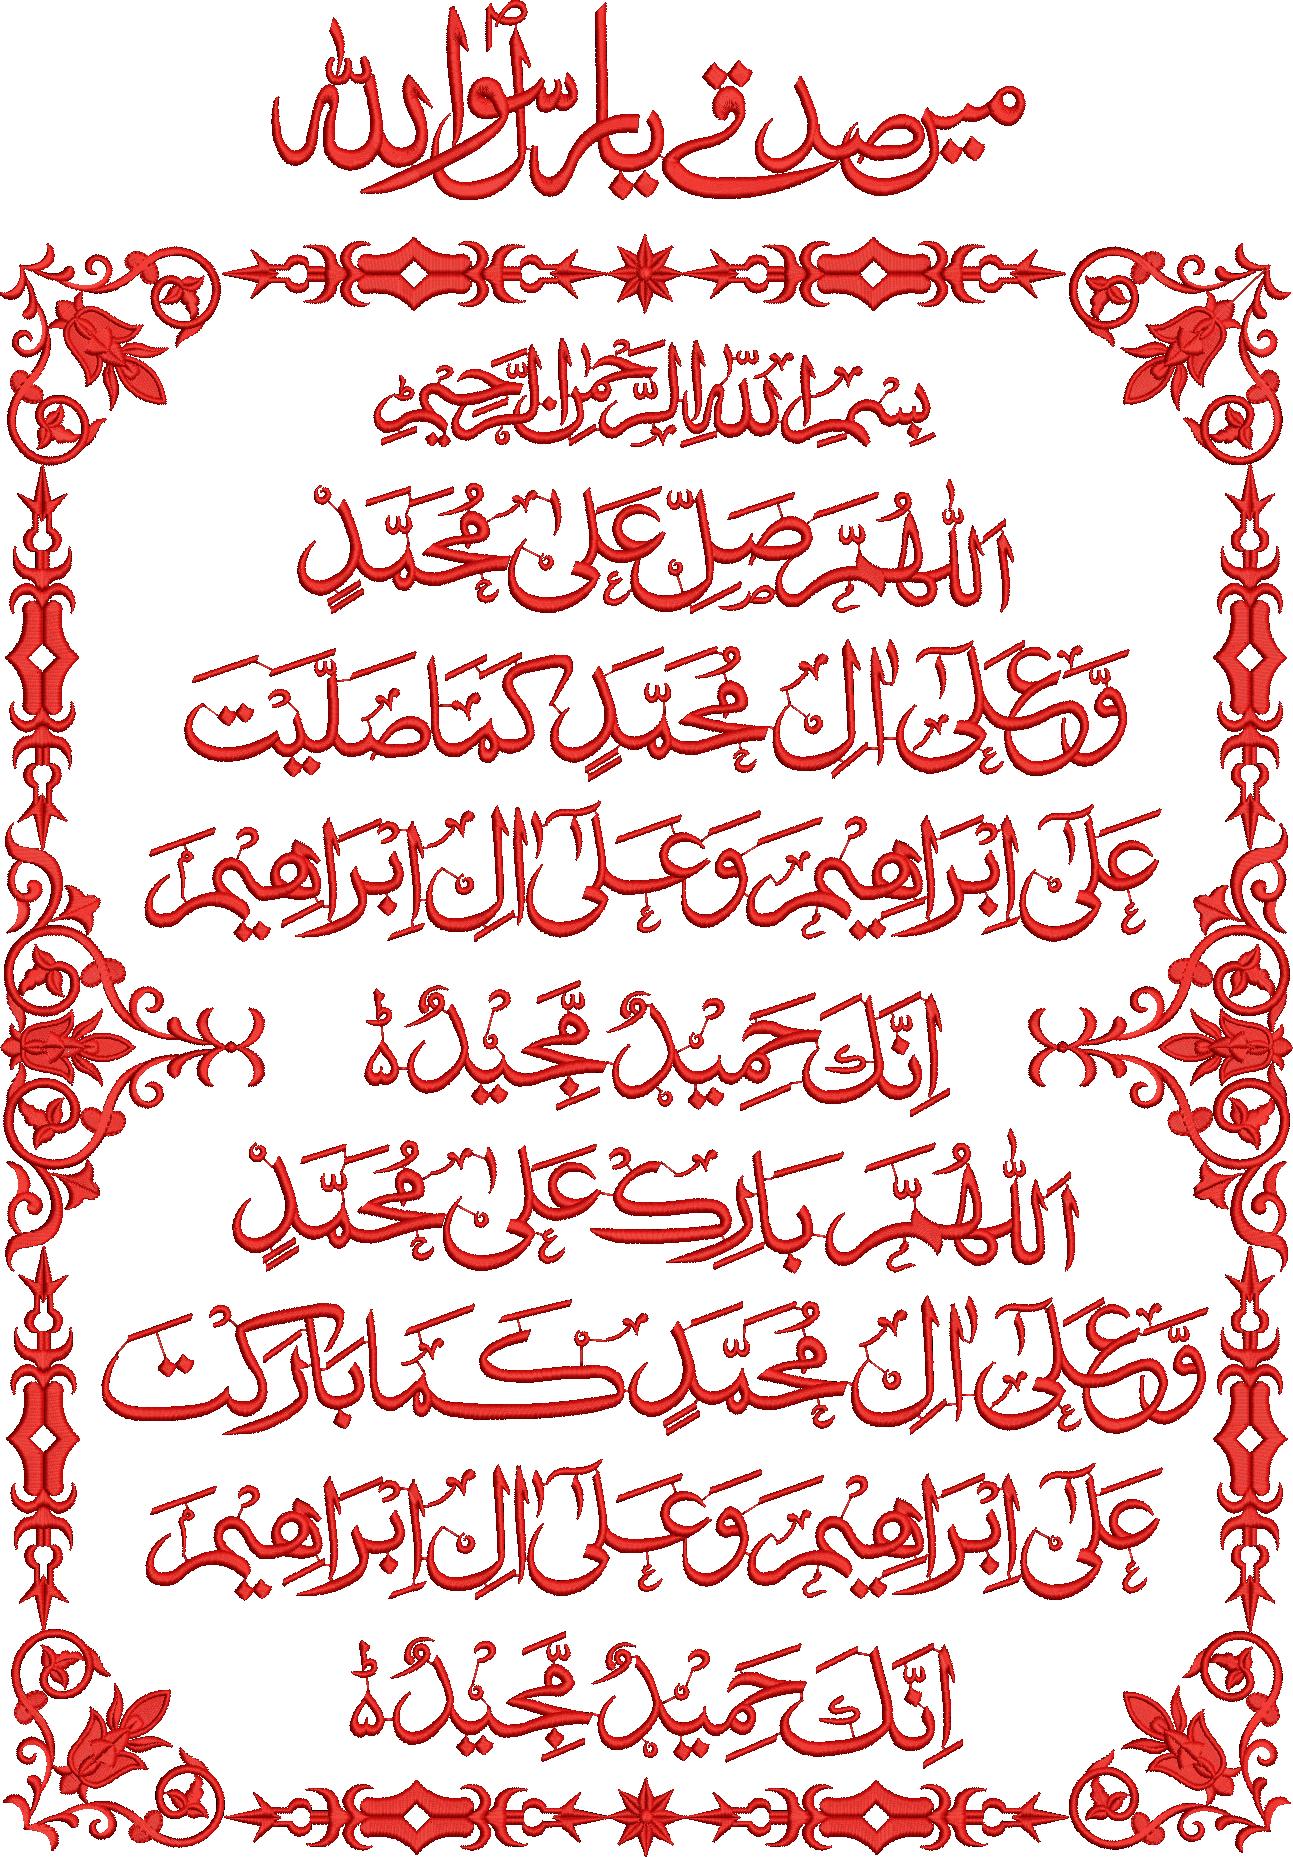 میں صدقے یا رسول اللہ ؐ
بِسْمِ اللّٰهِ الرَّحْمٰنِ الرَّحِیْمِ ط
اَللّٰهُمَّ صَلِّ عَلٰی مُحَمَّدٍ
وَّعَلٰۤی اٰلِ مُحَمَّدٍ كَمَا صَلَّیْتَ
عَلٰۤی اِبْرَاهِیْمَ وَعَلٰۤی اٰلِ اِبْرَاهِیْمَ
اِنَّكَ حَمِیْدٌ مَّجِیْدٌ ؕ۵
اَللّٰهُمَّ بَارِكْ عَلٰی مُحَمَّدٍ
وَّعَلٰۤی اٰلِ مُحَمَّدٍ كَمَا بَارَكْتَ
عَلٰۤی اِبْرَاهِیْمَ وَعَلٰۤی اٰلِ اِبْرَاهِیْمَ
اِنَّكَ حَمِیْدٌ مَّجِیْدٌ ؕ۵